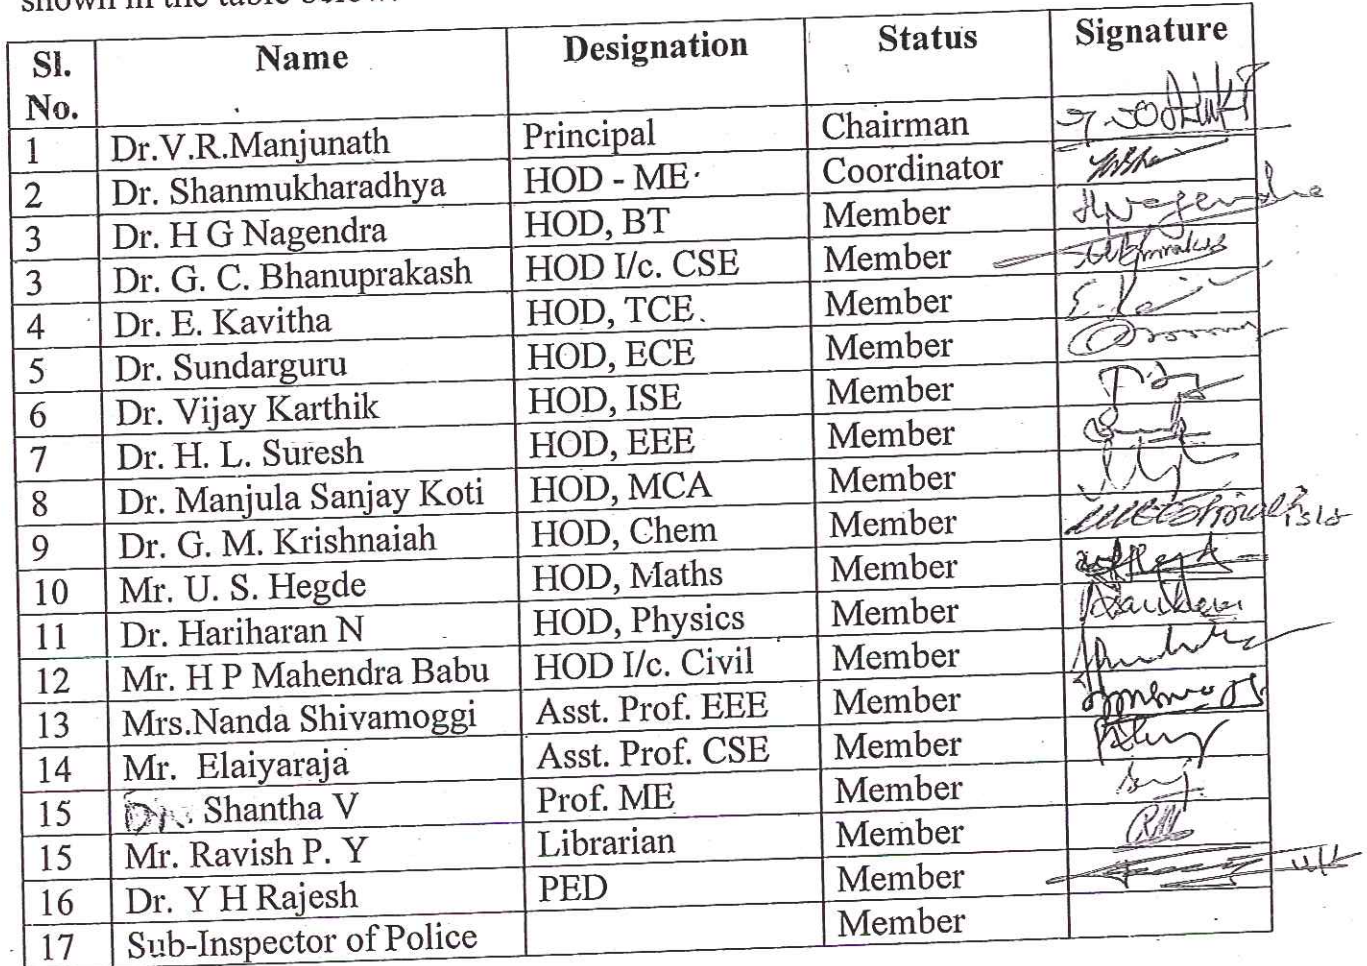 shown in the table below.
Sl. No. Name Designation Status Signature
1 Dr.V.R.Manjunath Principal Chairman
2 Dr. Shanmukharadhya HOD - ME Coordinator
3 Dr. H G Nagendra HOD, BT Member
3 Dr. G. C. Bhanuprakash HOD I/c. CSE Member
4 Dr. E. Kavitha HOD, TCE. Member
5 Dr. Sundarguru HOD, ECE Member
6 Dr. Vijay Karthik HOD, ISE Member
7 Dr. H. L. Suresh HOD, EEE Member
8 Dr. Manjula Sanjay Koti HOD, MCA Member
9 Dr. G. M. Krishnaiah HOD, Chem Member
10 Mr. U. S. Hegde HOD, Maths Member
11 Dr. Hariharan N HOD, Physics Member
12 Mr. H P Mahendra Babu HOD I/c. Civil Member
13 Mrs.Nanda Shivamoggi Asst. Prof. EEE Member
14 Mr. Elaiyaraja Asst. Prof. CSE Member
15 Dr. Shantha V Prof. ME Member
15 Mr. Ravish P. Y Librarian Member
16 Dr. Y H Rajesh PED Member
17 Sub-Inspector of Police Member